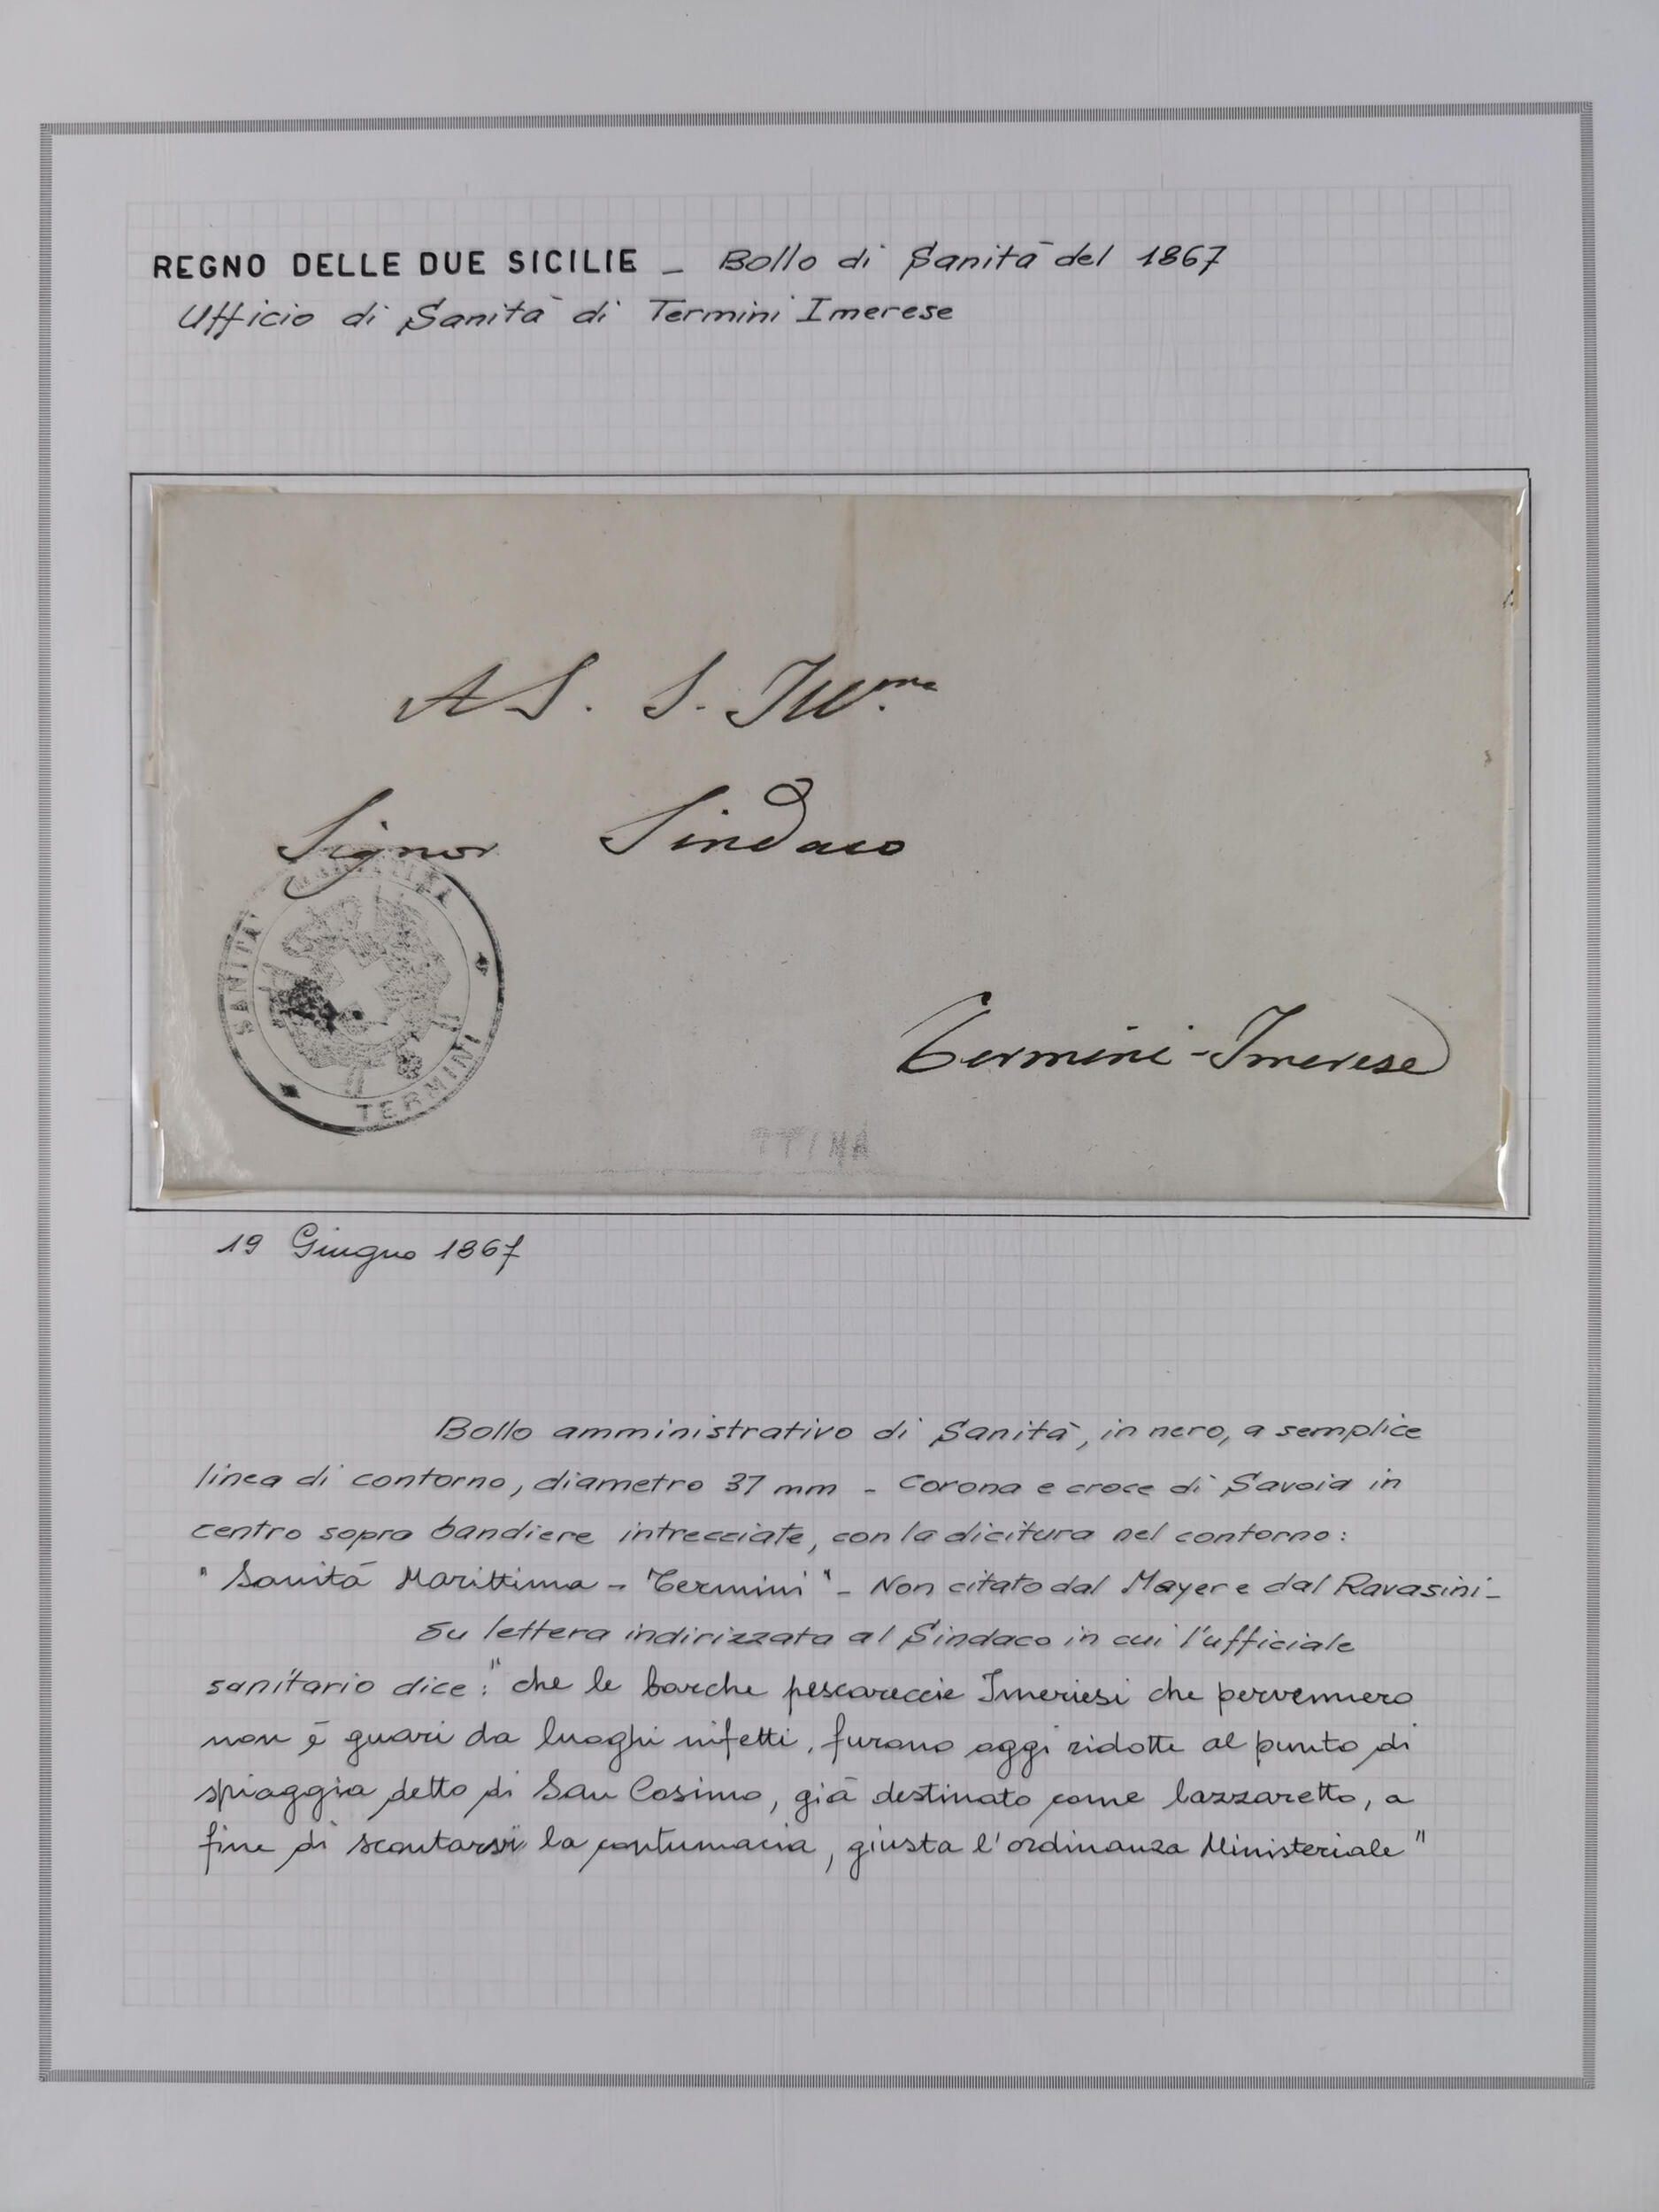 REGNO DELLE DUE SICILIE - Bollo di Sanità del 1867
Ufficio di Sanità di Termini Imerese
A S. S. Ill.ma
Signor Sindaco
SANITÀ MARITTIMA
TERMINI
Termini-Imerese
19 Giugno 1867
Bollo amministrativo di Sanità, in nero, a semplice
linea di contorno, diametro 37 mm - Corona e croce di Savoia in
centro sopra bandiere intrecciate, con la dicitura nel contorno:
"Sanità Marittima - Termini" - Non citato dal Mayer e dal Ravasini-
Su lettera indirizzata al Sindaco in cui l'ufficiale
sanitario dice: "che le barche pescareccie Imeriesi che pervennero
non è guari da luoghi infetti, furono oggi ridotte al punto di
spiaggia detto di San Cosimo, già destinato come lazzaretto, a
fine di scontarsi la contumacia, giusta l'ordinanza Ministeriale"